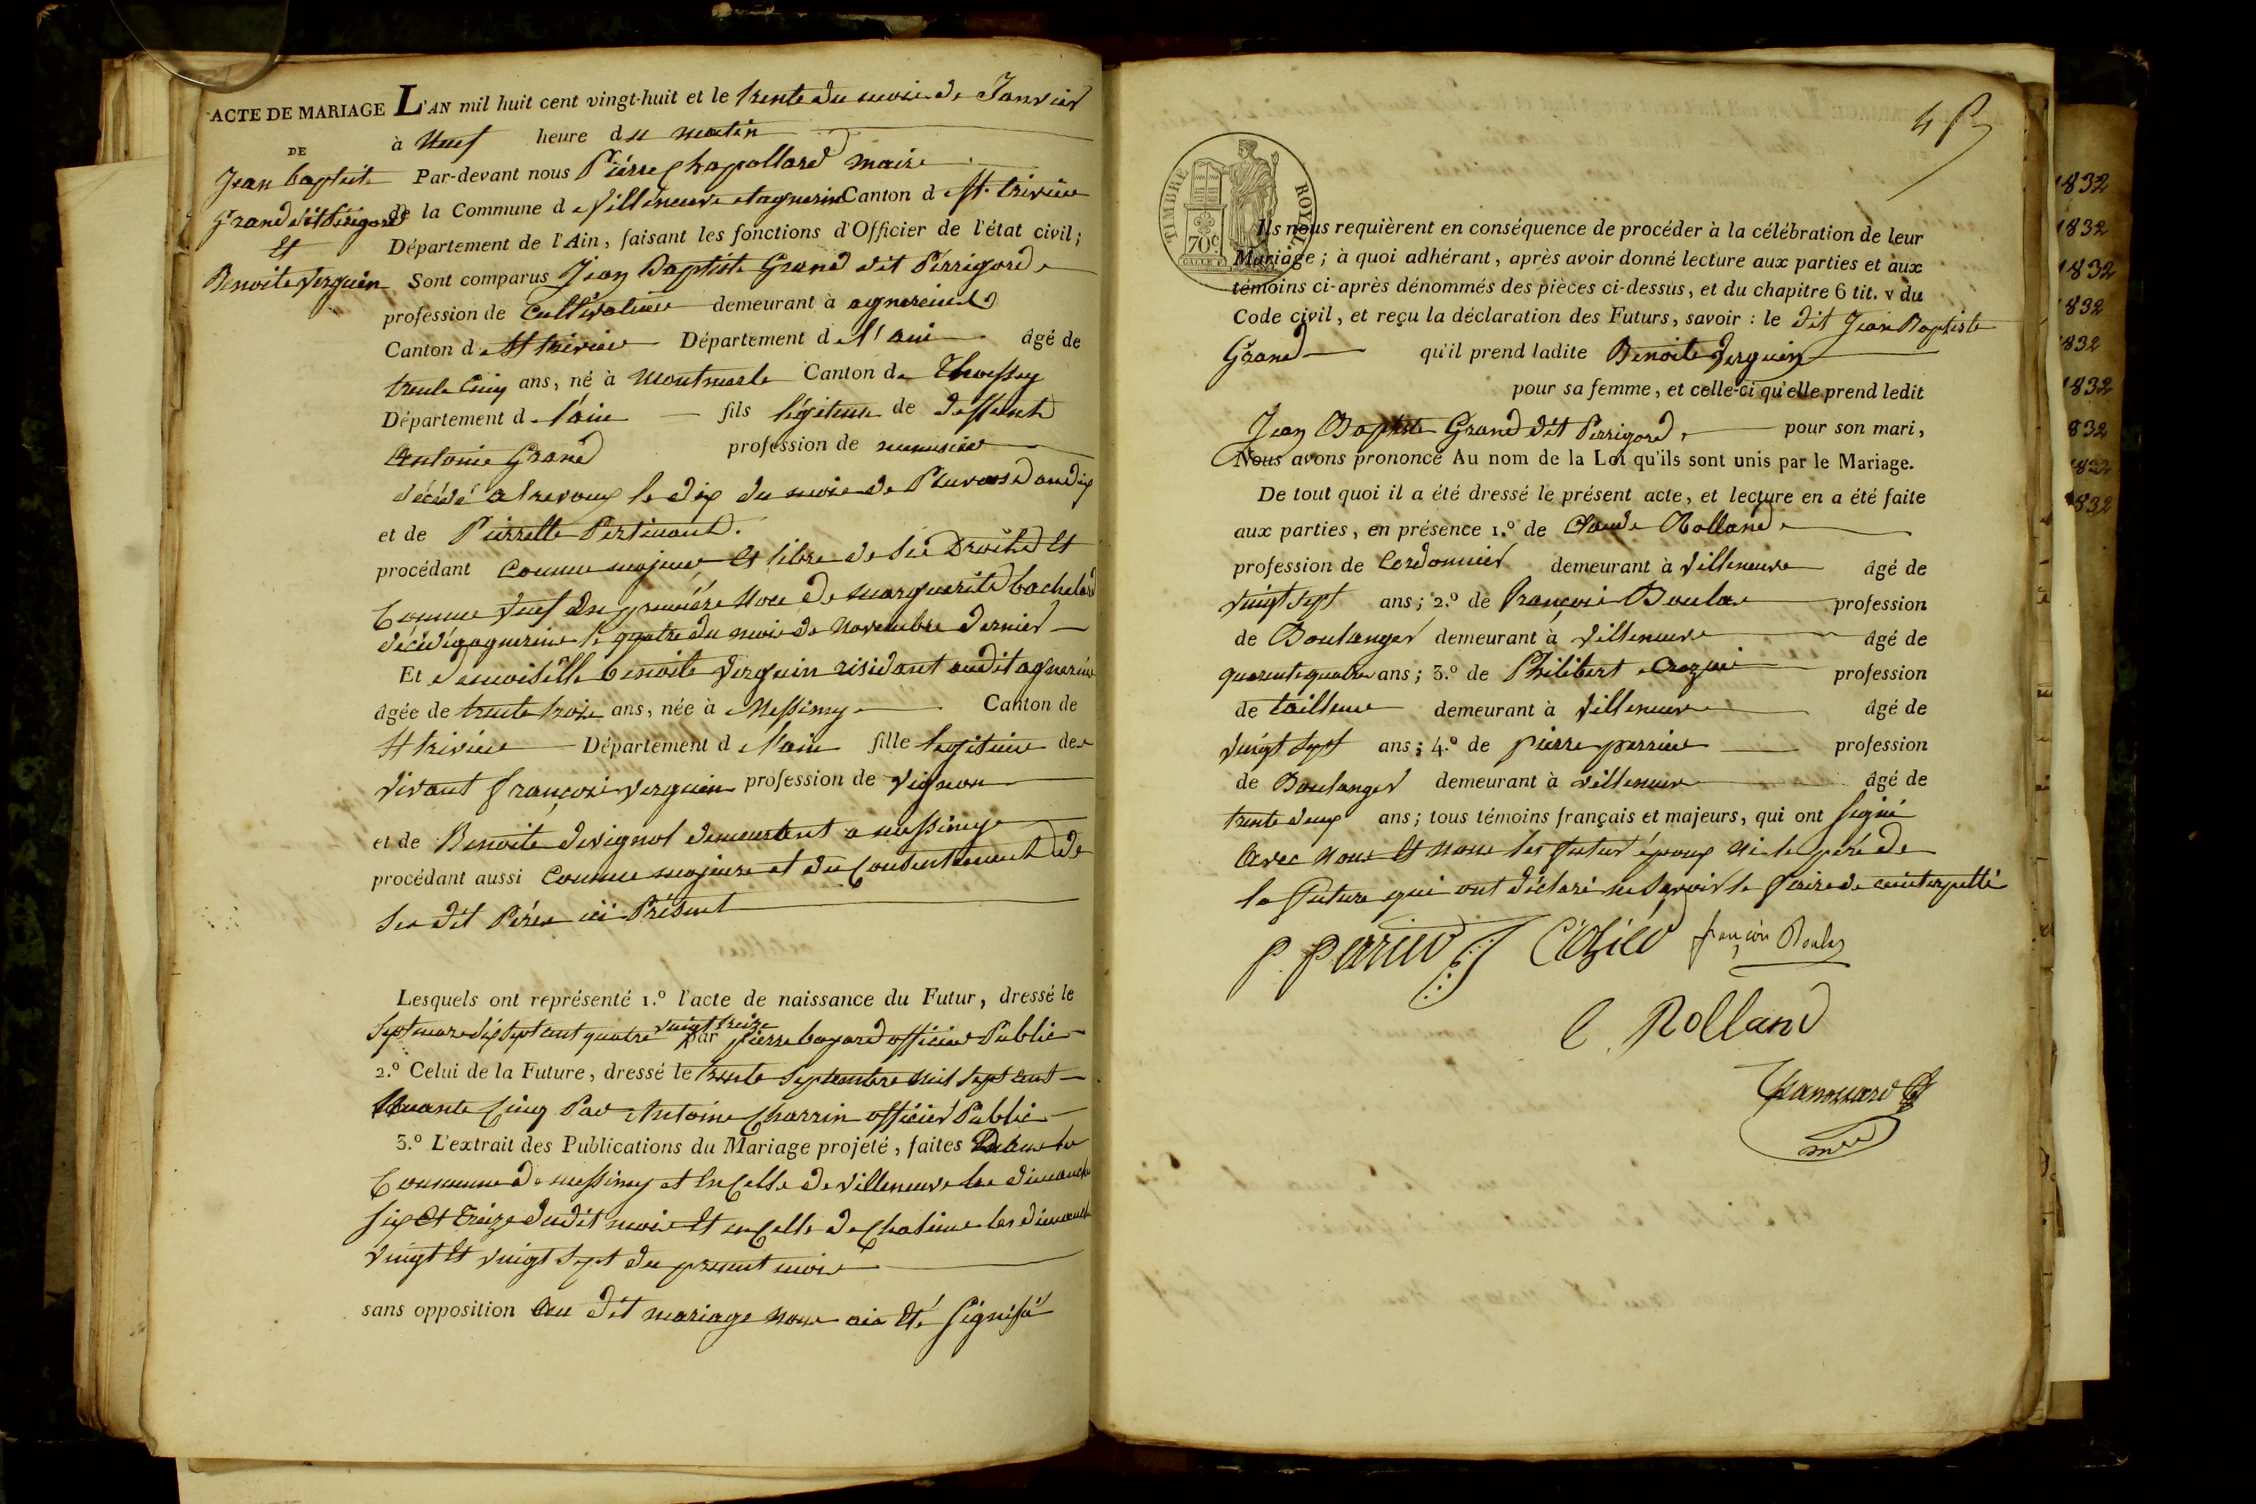 ACTE DE MARIAGE
DE
Jean baptiste
Grand dit Périgord
Et
Benoite Verguin
L'AN mil huit cent vingt-huit et le trente du mois de Janvier
à Neuf heure du matin
Par-devant nous Pierre Chapollard maire
de la Commune de Villeneuve et agnerin Canton de St. trivier
Département de l'Ain, faisant les fonctions d'Officier de l'état civil;
Sont comparus Jean Baptiste Grand dit Périgord
profession de Cultivateur demeurant à agnereins
Canton de St trivier Département de l'ain âgé de
trente Cinq ans, né à Montmerle Canton de Thoissey
Département de l'ain fils légitime de deffunt
Antoine Grand profession de menusier
décédé a trevoux le dix du mois de Pluviose an dix
et de Pierrette Pertinant.
procédant Comme majeur Et libre de ses Droits Et
Comme Veuf En première Noce de marguerite bachelard
décédé a agnerins le quatre du mois de Novembre dernier
Et demoiselle benoite Verguin residant audit agnerin
âgée de trente trois ans, née à Messimy Canton de
St trivier Département de l'ain fille legitime de
vivant françois Verguin profession de Vigneron
et de Benoite devignot demeurant a messimy
procédant aussi Comme majeure et du Consentement de
Ses dit Pères ici Présent
Lesquels ont représenté 1.º l'acte de naissance du Futur, dressé le
Sept mars dix Sept cent quatre vingt treize par pierre bayard officier Public
2.º Celui de la Future, dressé le trente Septembre mil Sept cent
Cinq Par Antoine Charrin officier Public
3.º L'extrait des Publications du Mariage projeté, faites Dans la
Commune de messimy et En Celle de Villeneuve les dimanches
Six Et treize dudit mois Et en Celle de Chaleins les dimanches
Vingt Et Vingt Sept du present mois
sans opposition au dit mariage nous aie Eté Signifié
4
TIMBRE ROYAL
70 c
Ils nous requièrent en conséquence de procéder à la célébration de leur
Mariage; à quoi adhérant, après avoir donné lecture aux parties et aux
témoins ci-après dénommés des pièces ci-dessus, et du chapitre 6 tit. v du
Code civil, et reçu la déclaration des Futurs, savoir : le dit Jean Baptiste
Grand qu'il prend ladite Benoite Verguin
pour sa femme, et celle-ci qu'elle prend ledit
Jean Baptiste Grand dit Perrigord, pour son mari,
Nous avons prononcé Au nom de la Loi qu'ils sont unis par le Mariage.
De tout quoi il a été dressé le présent acte, et lecture en a été faite
aux parties, en présence 1.º de Claude Rolland
profession de Cordonnier demeurant à Villeneuve âgé de
Vingt Sept ans; 2.º de François Boulas profession
de Boulanger demeurant à Villeneuve âgé de
quarente quatre ans; 3.º de Philibert Crozier profession
de tailleur demeurant à Villeneuve âgé de
Vingt Sept ans; 4.º de pierre perrier profession
de Boulanger demeurant à Villeneuve âgé de
trente deux ans; tous témoins français et majeurs, qui ont Signé
avec Nous Et Non les futur époux Ni le père de
la Future qui ont déclaré ne Savoir le faire de ce interpellé
P. Perrier Cozier françois Boulas
C. Rolland
1832
1832
1832
1832
1832
1832
832
832
832